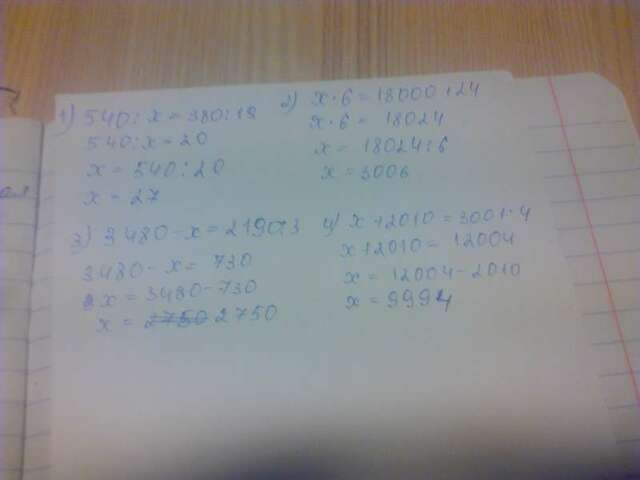 1) 540:x=380:19
540:x=20
x=540:20
x=27
2) x·6=18000+24
x·6=18024
x=18024:6
x=3006
3) 3480-x=2190:3
3480-x=730
x=3480-730
x=2750 2750
4) x+2010=3001·4
x+2010=12004
x=12004-2010
x=9994